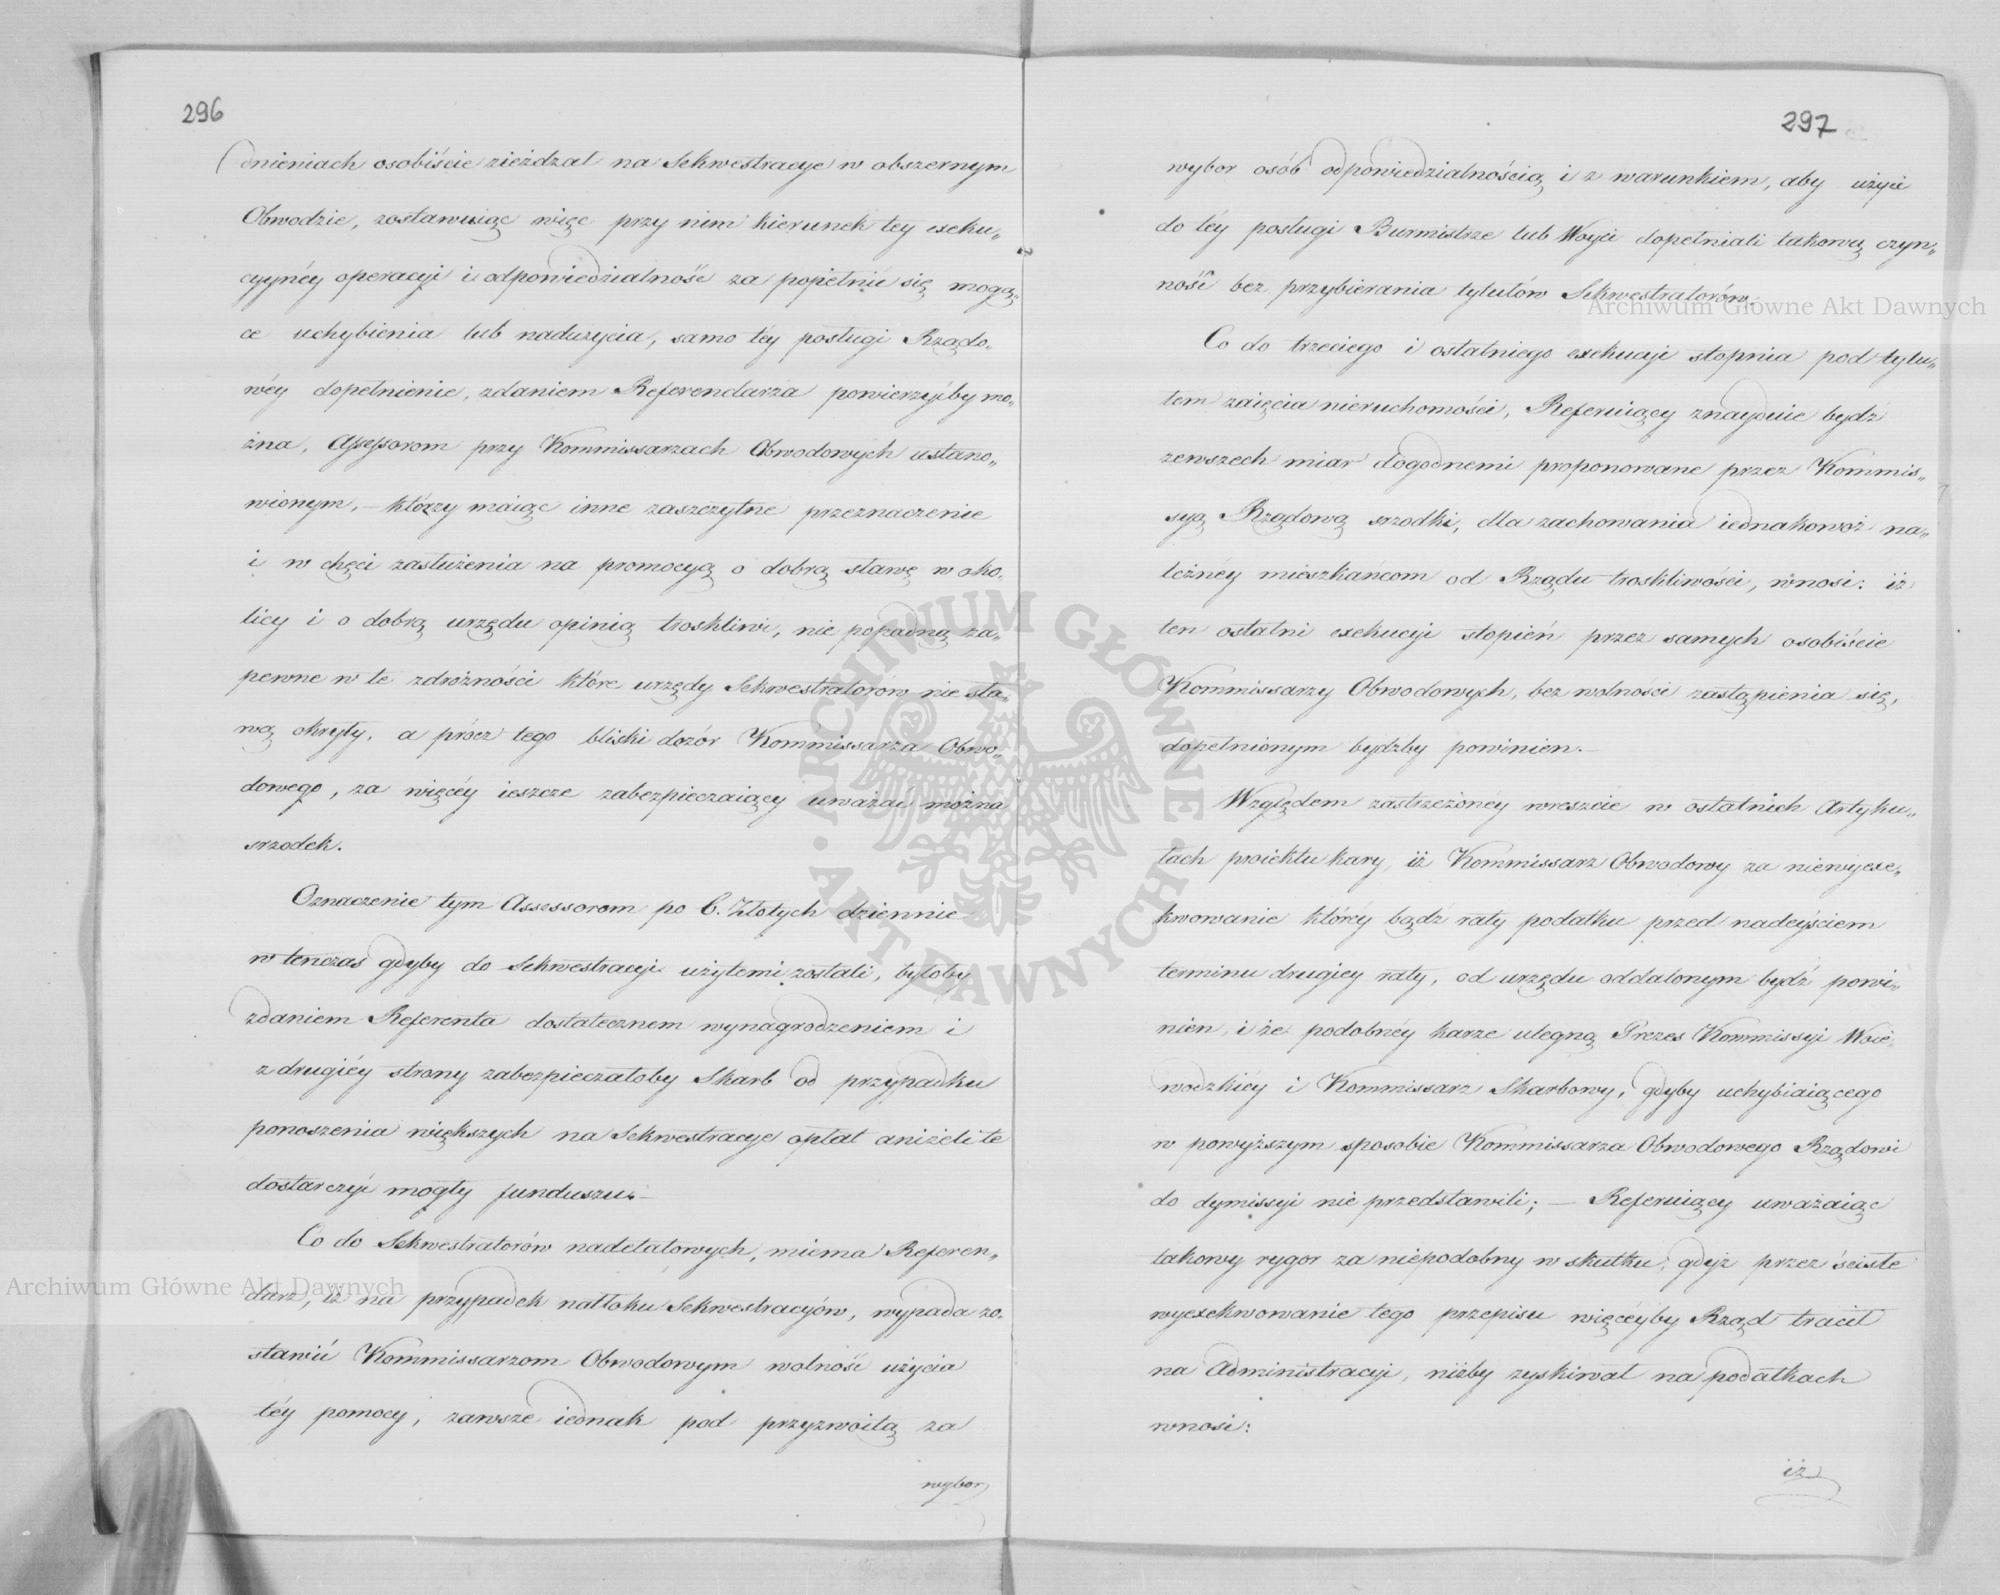 296
dnieniach osobiście zieżdzał na Sekwestracye w obszernym
Obwodzie, zostawuiąc więc przy nim kierunek tey exeku„
cyynéy operacyi i odpowiedzialność za popełnić się mogą„
ce uchybienia lub nadużycia, samo téy posługi Rządo„
wéy dopełnienie, zdaniem Referendarza powierzyćby mo„
żna, Assessorom przy Kommissarzach Obwodowych ustano„
wionym, – którzy maiąc inne zaszczytne przeznaczenie
i w chęci zasłużenia na promocyą o dobrą sławę w oko„
licy i o dobrą urzędu opinią troskliwi, nie popadną za„
pewne w te zdrożności które urzędy Sekwestratorów nie sła„
wą okryły, a prócz tego bliski dozór Kommissarza Obwo„
dowego, za więcéy ieszcze zabezpieczaiący uważać można
srzodek.
Oznaczenie tym Assessorom po 6. Złotych dziennie
w tenczas gdyby do Sekwestracyi użytemi zostali, byłoby
zdaniem Referenta dostatecznem wynagrodzeniem i
z drugiéy strony zabezpieczałoby Skarb od przypadku
ponoszenia większych na Sekwestracye opłat aniżeli te
dostarczyć mogły funduszu. –
Co do Sekwestratorów nadetatowych, mniema Referen„
darz, iż na przypadek natłoku Sekwestracyów, wypada zo„
stawić Kommissarzom Obwodowym wolność użycia
téy pomocy, zawsze iednak pod przyzwoitą za
wybor
297
wybor osób odpowiedzialnością i z warunkiem, aby użyci
do téy posługi Burmistrze lub Woyci dopełniali takową czyn„
ność bez przybierania tytułów Sekwestratorów.
Co do trzeciego i ostatniego exekucyi stopnia pod tytu„
łem zaięcia nieruchomości, Referuiący znayduie bydź
zewszech miar dogodnemi proponowane przez Kommis„
syą Rządową srzodki, dla zachowania iednakowoż na„
leżnéy mieszkańcom od Rządu troskliwości, wnosi: iż
ten ostatni exekucyi stopień przez samych osobiście
Kommissarzy Obwodowych, bez wolności zastąpienia się,
dopełnionym bydzby powinien. –
Względem zastrzeżonéy wreszcie w ostatnich Artyku„
łach proiektu kary, iż Kommissarz Obwodowy za niewyexe„
kwowanie któréy bądź raty podatku przed nadeyściem
terminu drugiey raty, od urzędu oddalonym bydź powi„
nien, i że podobnéy karze ulegną Prezes Kommissyi Woie„
wodzkiéy i Kommissarz Skarbowy, gdyby uchybiaiącego
w powyższym sposobie Kommissarza Obwodowego Rządowi
do dymissyi nie przedstawili; – Referuiący uważaiąc
takowy rygor za niepodobny w skutku, gdyż przez ścisłe
wyexekwowanie tego przepisu więcéyby Rząd tracił
na Administracyi, niżby zyskiwał na podatkach
wnosi:
iż
Archiwum Główne Akt Dawnych
Archiwum Główne Akt Dawnych
ARCHIWUM GŁÓWNE AKT DAWNYCH